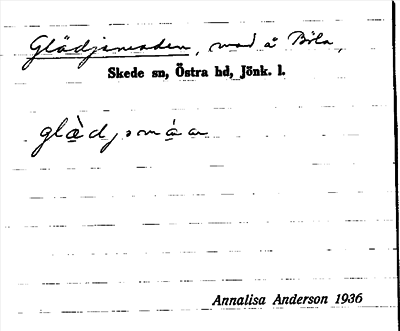 Glädjemaden, mad å Böla,
Skede sn, Östra hd, Jönk. l.
Annalisa Anderson 1936